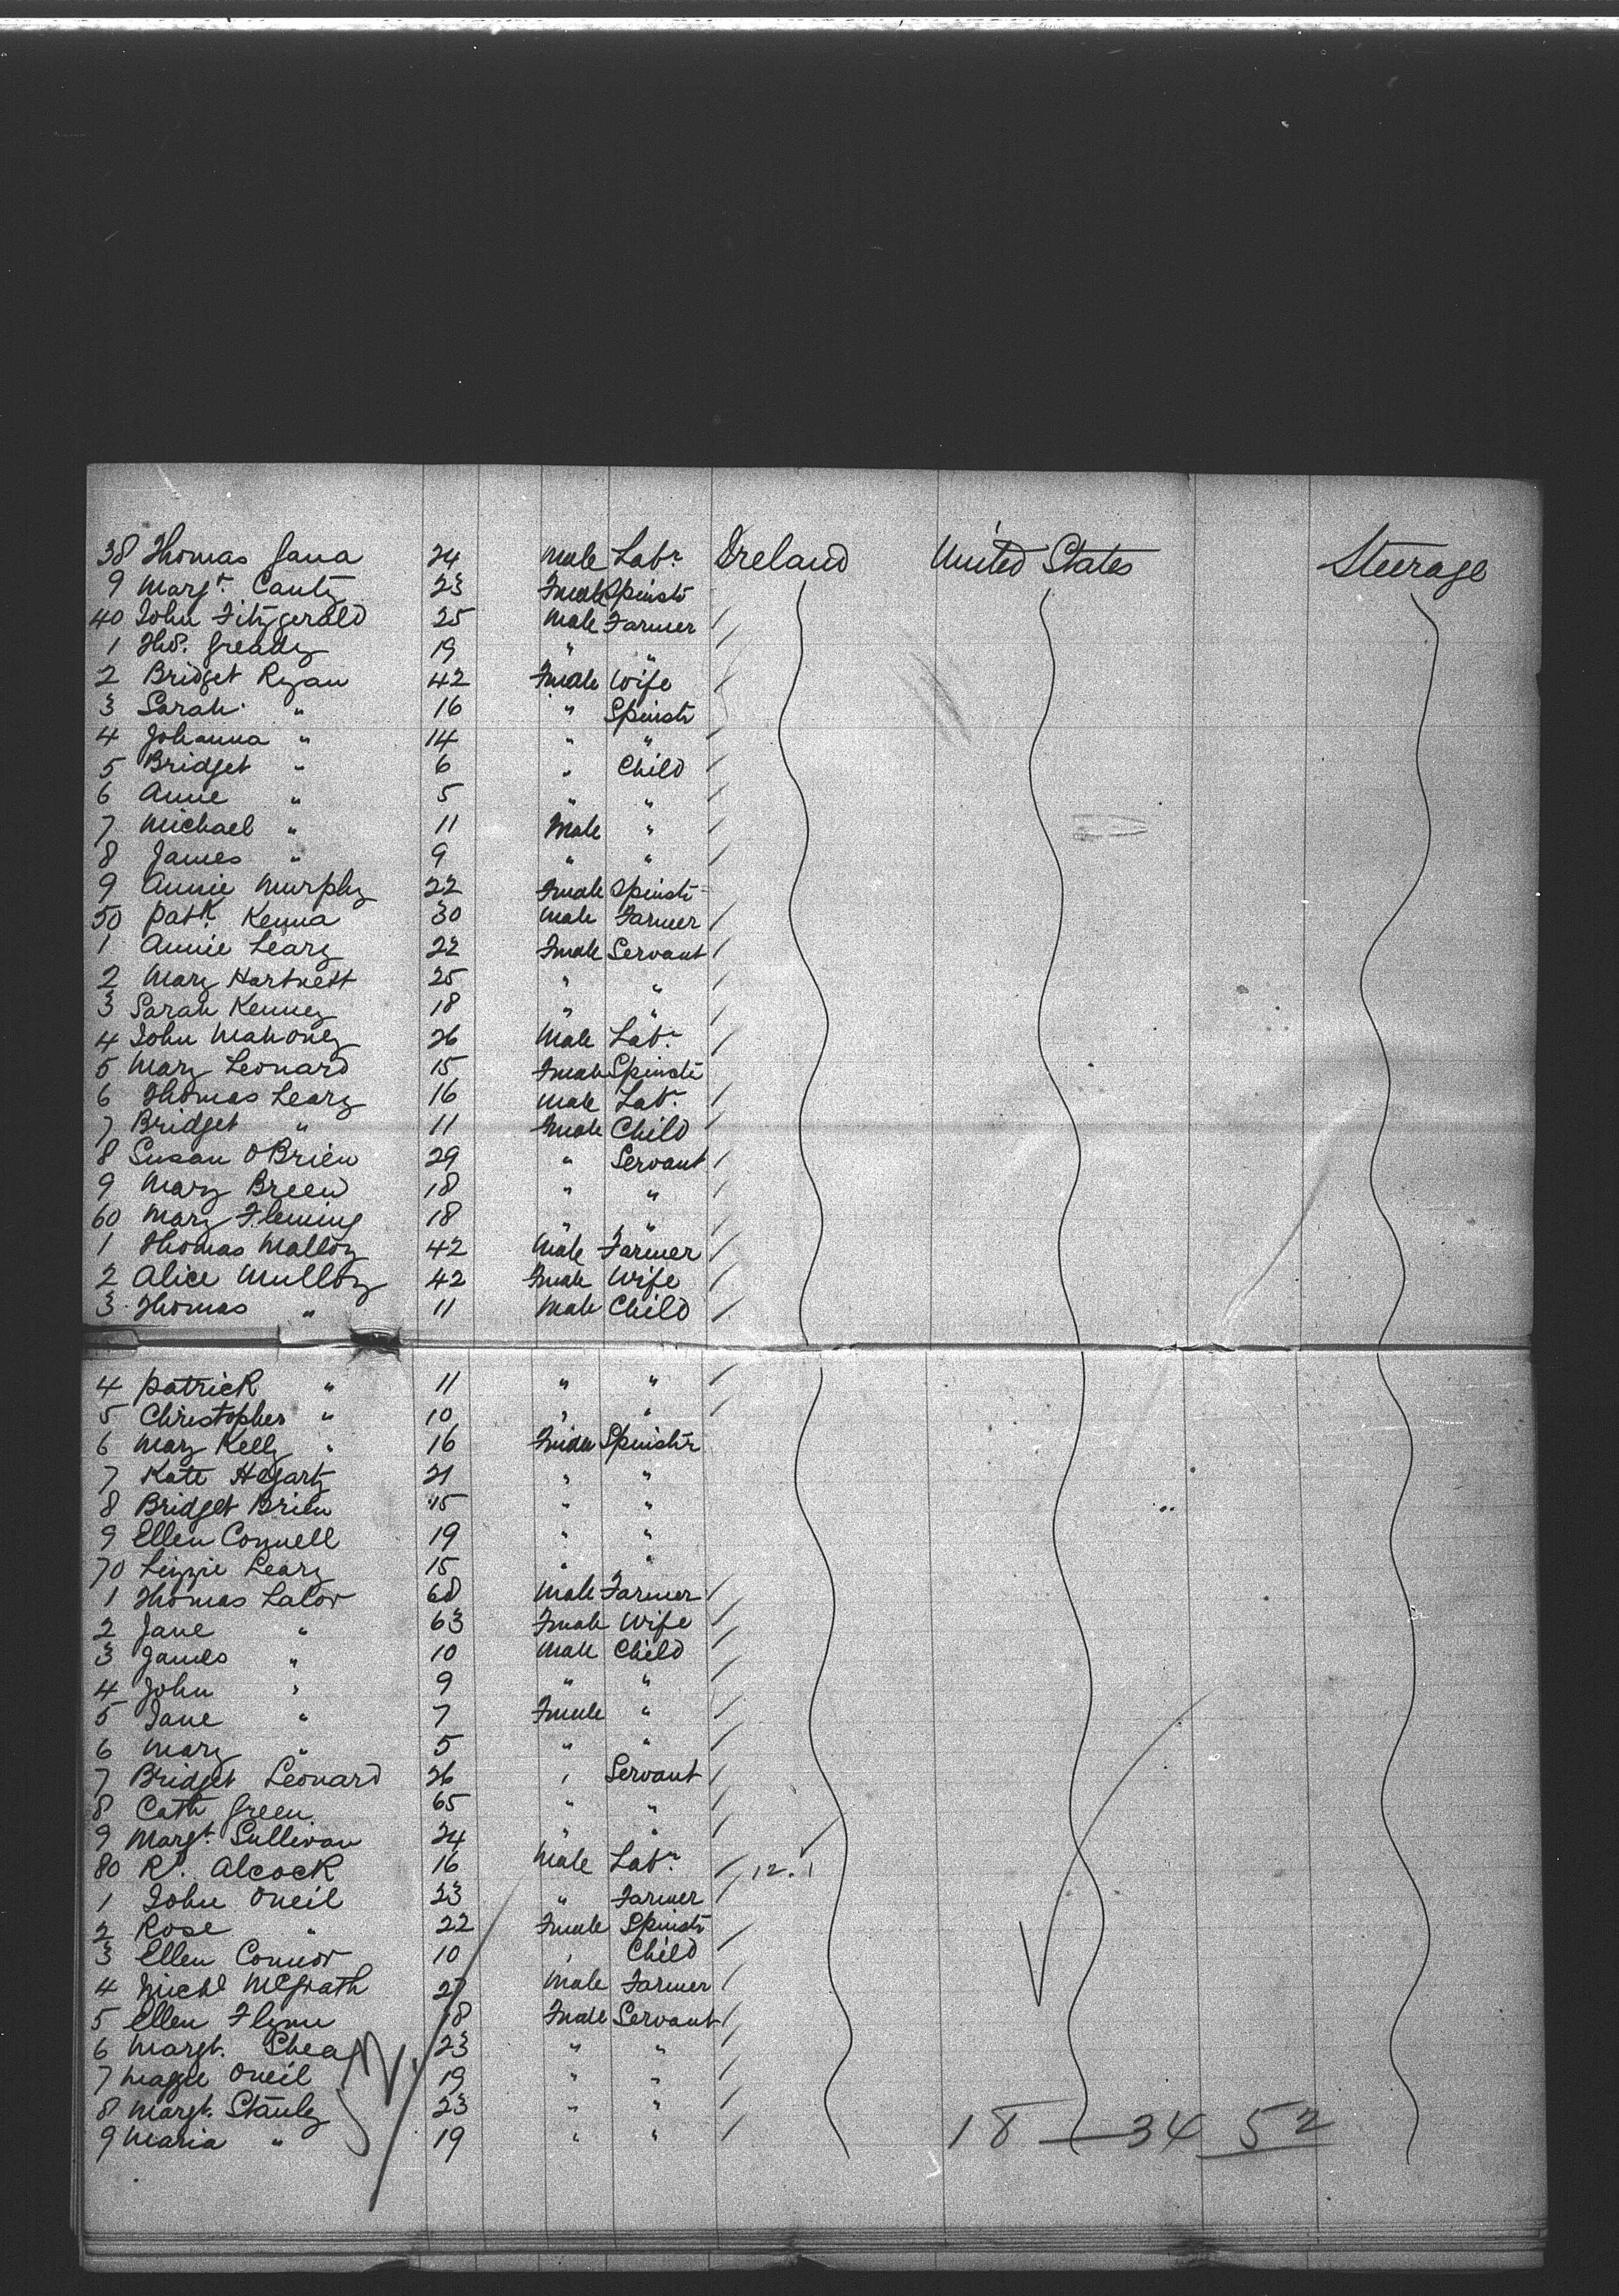 38 Thomas Gava 24 Male Labr Ireland United States Steerage
9 Margt Canty 23 Female Spinstr
40 John Fitzgerald 25 Male Farmer
1 Thos. Gready 19 " "
2 Bridget Ryan 42 Female Wife
3 Sarah " 16 " Spinstr
4 Johanna " 14 " "
5 Bridget " 6 " Child
6 Anne " 5 " "
7 Michael " 11 Male "
8 James " 9 " "
9 Annie Murphy 22 Female Spinstr
50 Patk. Kenna 30 Male Farmer
1 Annie Leary 22 Female Servant
2 Mary Hartnett 25 " "
3 Sarah Kenney 18 " "
4 John Mahoney 26 Male Labr
5 Mary Leonard 15 Female Spinstr
6 Thomas Leary 16 Male Labr
7 Bridget " 11 Female Child
8 Susan OBrien 29 " Servant
9 Mary Breen 18 " "
60 Mary Fleming 18 " "
1 Thomas Malloy 42 Male Farmer
2 Alice Mulloy 42 Female Wife
3 Thomas " 11 Male Child
4 Patrick " 11 " "
5 Christopher " 10 " "
6 Mary Kelly " 16 Female Spinstr
7 Kate Hegarty 21 " "
8 Bridget Brien 15 " "
9 Ellen Connell 19 " "
70 Lizzie Leary 15 " "
1 Thomas Lalor 68 Male Farmer
2 Jane " 63 Female Wife
3 James " 10 Male Child
4 John " 9 " "
5 Jane " 7 Female "
6 Mary " 5 " "
7 Bridget Leonard 26 " Servant
8 Cath Green 65 " "
9 Margt. Sullivan 24 " "
80 Rd. Alcock 16 Male Labr 12.1
1 John Oneil 23 " Farmer
2 Rose " 22 Female Spinstr
3 Ellen Connor 10 " Child
4 Michl McGrath 27 Male Farmer
5 Ellen Flynn 18 Female Servant
6 Margt. Shea 23 " "
7 Maggie Oneil 19 " "
8 Margt. Stanley 23 " "
9 Maria " 19 " "
18 — 34 52